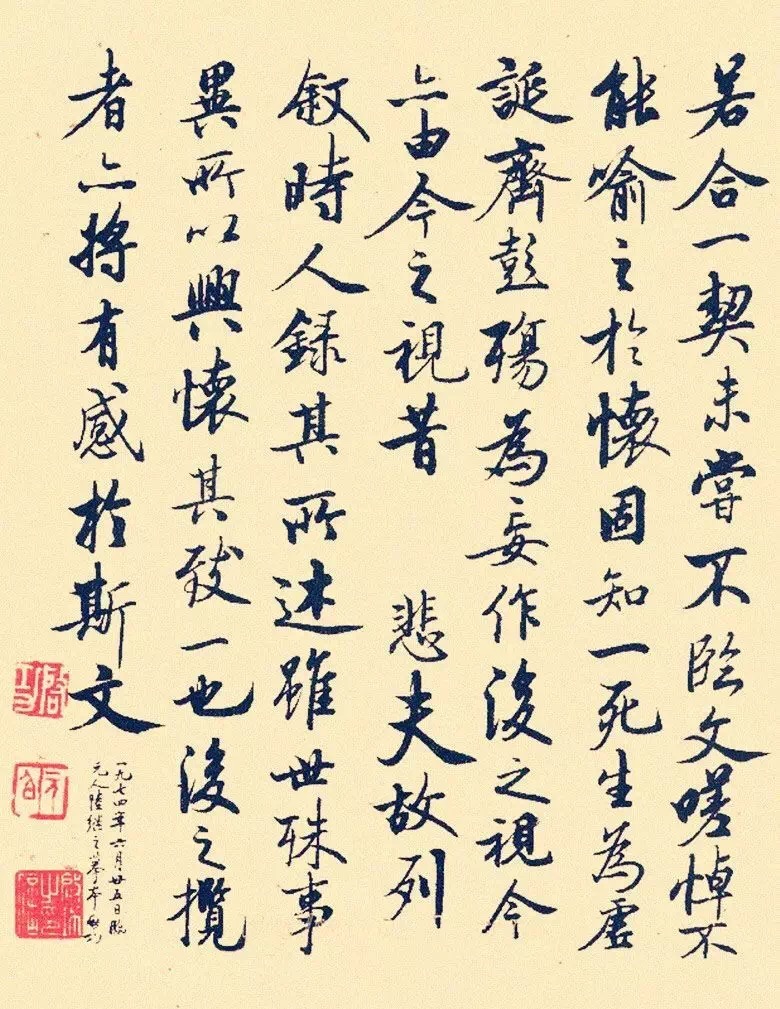 若合一契未嘗不臨文嗟悼不
能喻之於懷固知一死生為虛
誕齊彭殤為妄作後之視今
亦由今之視昔 悲夫故列
敘時人錄其所述雖世殊事
異所以興懷其致一也後之攬
者亦將有感於斯文
一九七四年六月廿五日臨
元人陸繼之摹本 啟功
啟功